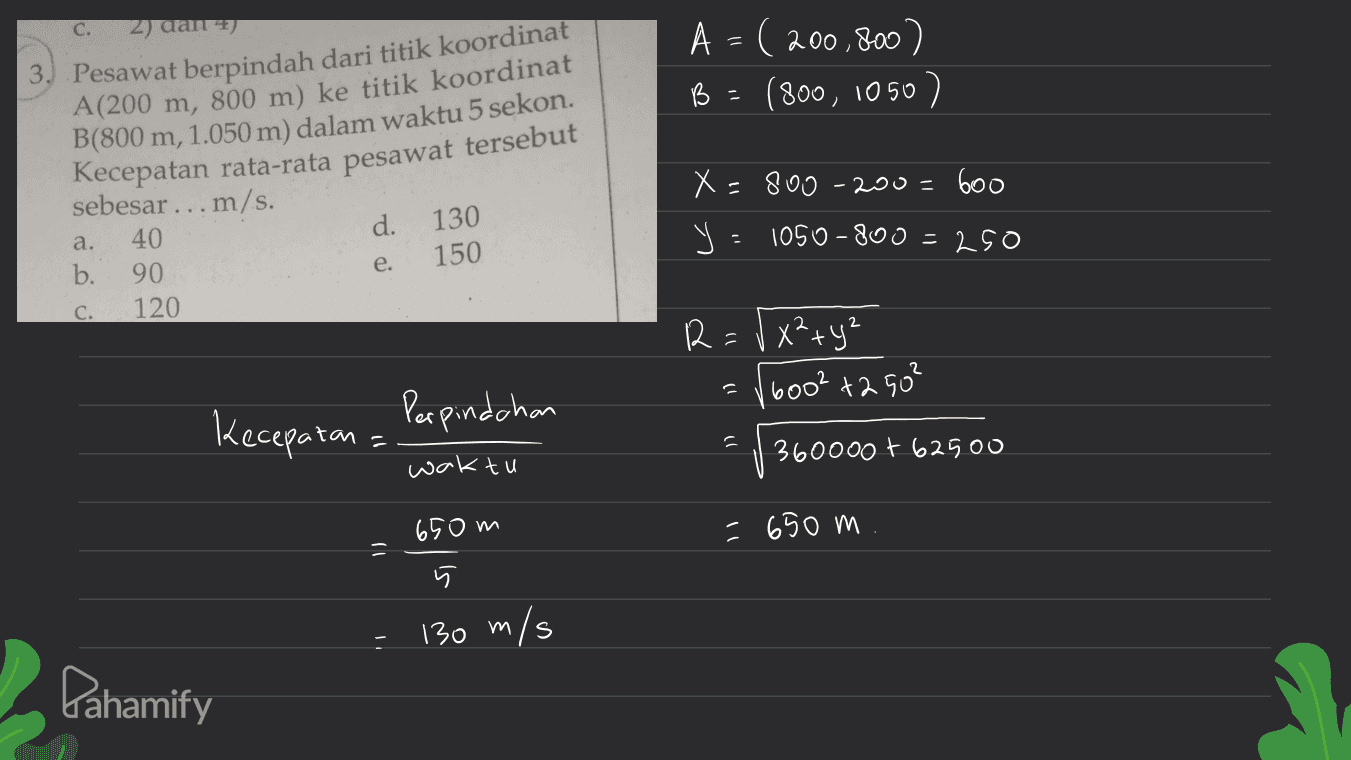 c. 2) dan 4)
3. Pesawat berpindah dari titik koordinat
A(200 m, 800 m) ke titik koordinat
B(800 m, 1.050 m) dalam waktu 5 sekon.
Kecepatan rata-rata pesawat tersebut
sebesar . . . m/s.
a. 40
b. 90
c. 120
d. 130
e. 150
A = ( 200, 800 )
B = (800, 1050 )
X = 800 - 200 = 600
y = 1050 - 800 = 250
R = √x²+y²
= √600² + 250²
= √360000 + 62500
= 650 m.
Kecepatan = Perpindahan
waktu
= 650 m
5
= 130 m/s
Pahamify